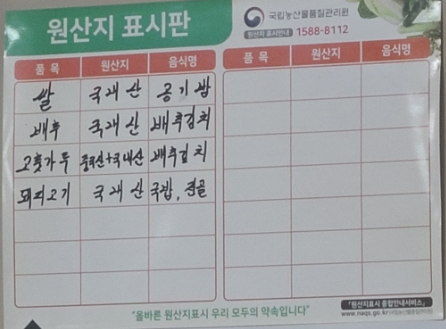 원산지 표시판
국립농산물품질관리원
원산지 표시안내 1588-8112
품 목 원산지 음식명
쌀 국내산 공기밥
배추 국내산 배추김치
고춧가루 중국산+국내산 배추김치
돼지고기 국내산 국밥, 전골
품 목 원산지 음식명
"올바른 원산지표시 우리 모두의 약속입니다"
「원산지표시 종합안내서비스」
www.naqs.go.kr